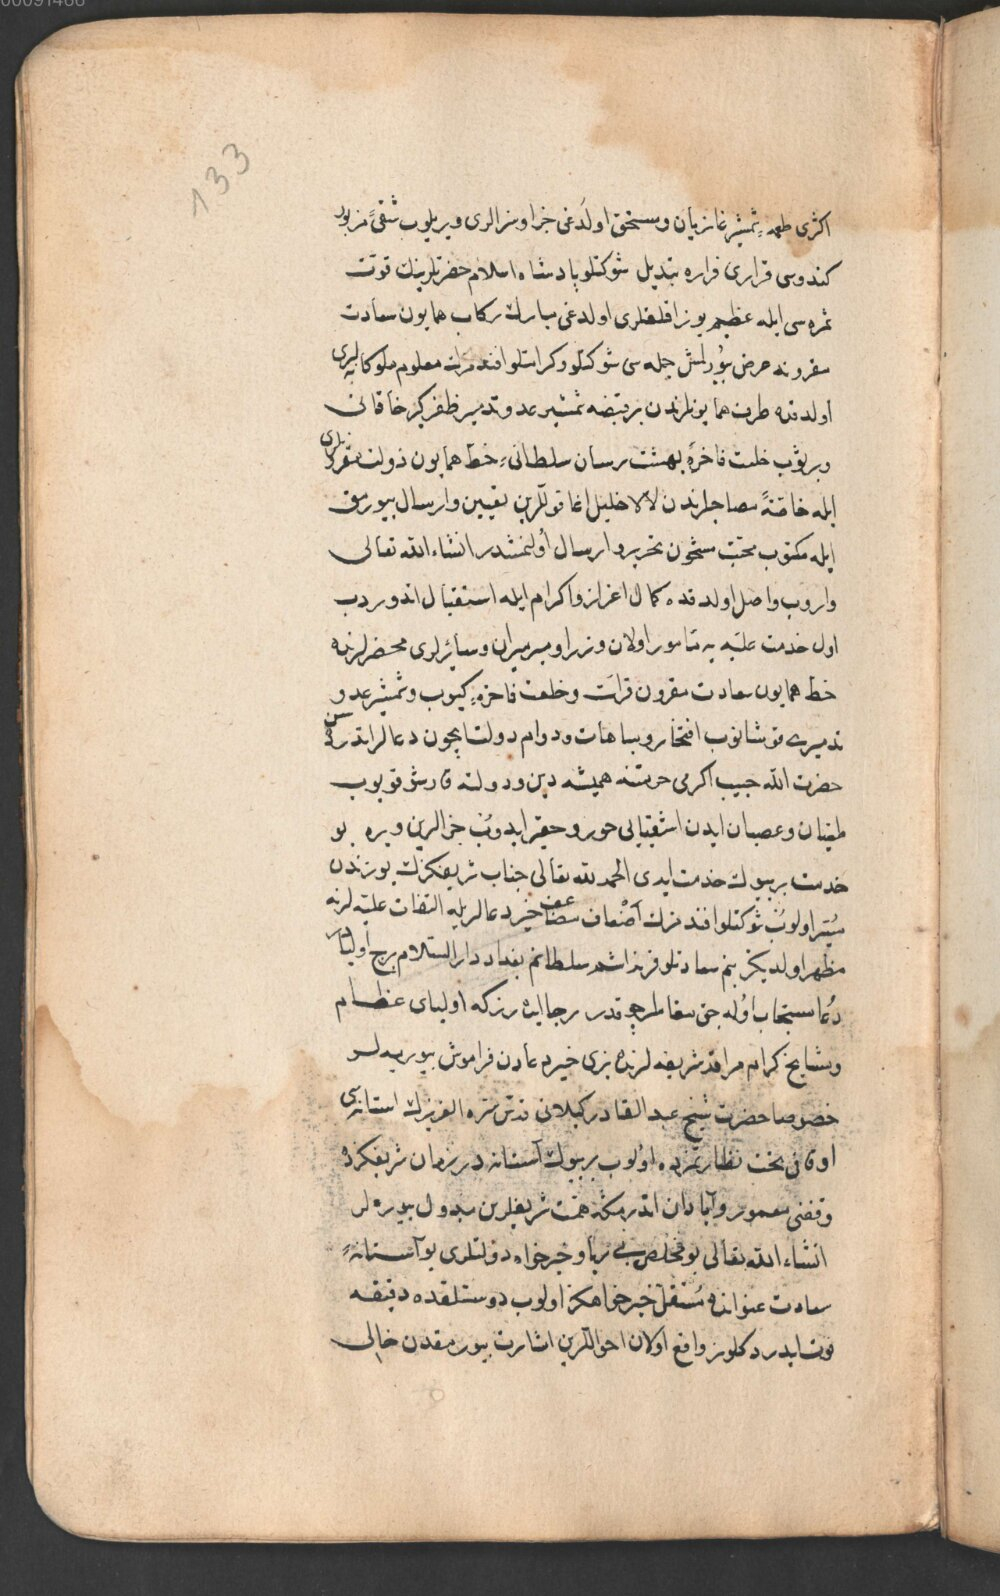 00091466
133
اكثری طعمهٔ شمشیر غازیان و مستحق اولدغی جزا و سزالری ویریلوب شقیٔ مزبور
كندوسی قراری فراره تبدیل شوكتلو پادشاه اسلام حضرتلرینك قوت
ثمره سی ایله عظیم یوز اقلقلری اولدغی مبارك ركاب همایون سعادت
مقرونه عرض بیورلمش جمله سی شوكتلو وكرامتلو افندمزك معلوم ملوكانه لری
اولدقده طرف همایونلرندن بر قبضه شمشیر عدو تدمیر ظفر كیر خاقانی
ویریلوب خلعت فاخرهٔ بهشت رسان سلطانی خط همایون دولت مقرونلری
ایله خاصةً مصاحبلرندن لالا خلیل اغا قوللرین تعیین وارسال بیورمق
ایله مكتوب محبت مشحون تحریر وارسال اولنمشدر انشاء الله تعالی
واروب واصل اولدقده كمال اعزاز واكرام ایله استقبال ایدوب
اول خدمت علیه یه مأمور اولان وزرا ومیرمیران وسائرلری محضرلرنده
خط همایون سعادت مقرون قرأت وخلعت فاخرهٔ كیوب وشمشیر عدو
تدمیری قوشانوب افتخار ومباهات ودوام دولت ایچون دعالر ایدرسن
حضرت الله حبیب اكرمی حرمتنه همیشه دین ودولته قارشو قویوب
طغیان وعصیان ایدن اشقیایی خور وحقیر ایدوب جزالرین ویره بو
خدمت بر بیوك خدمت ایدی الحمد لله تعالی جناب شریفكزك یوزندن
میسر اولوب شوكتلو افندمزك اضعاف مضاعف خیر دعالریله التفات علیه لرینه
مظهر اولدیكز بنم سعادتلو قرنداشم سلطانم بغداد دار السلام برج اولیا در
دعا مستجاب اوله جق مقاملر چوقدر رجا ایدرز كه اولیای عظام
ومشایخ كرام مراقد شریفه لرنده بزی خیر دعادن فراموش بیورمیه لر
خصوصا حضرت شیخ عبد القادر كیلانی قدس سره العزیزك استانه سی
اوقافی تحت نظارتمزده اولوب بر بیوك آستانه در زمان شریفكزده
وقفنی معمور وآبادان ایتدرمكه همت شریفلرین مبذول بیوره لر
انشاء الله تعالی بو مخلص بی ریا وخیرخواه دولتلری بو آستانهٔ
سعادت عنوانده مستقل خیرخواهكز اولوب دوستلقده دقیقه
فوت ایدر دكلوز واقع اولان احواللرین اشارت بیورمقدن خالی